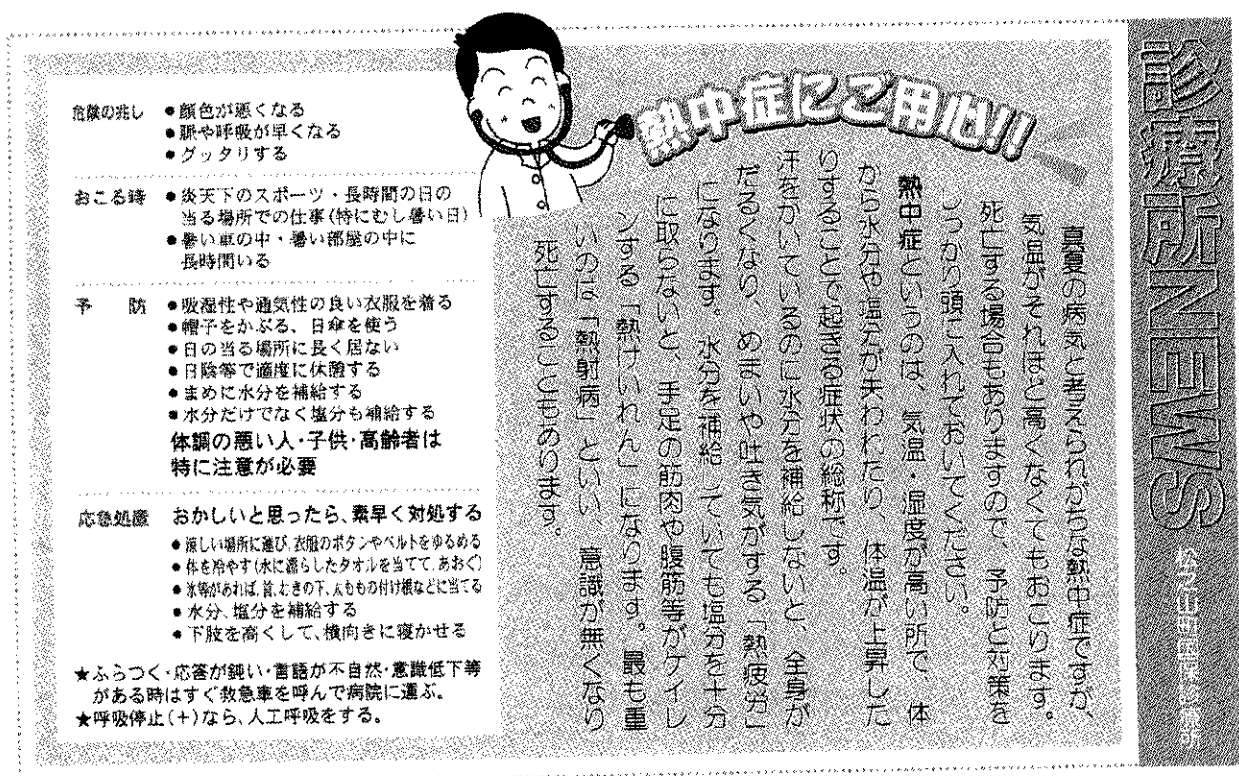 診療所NEWS
熱中症にご用心!!
真夏の病気と考えられがちな熱中症ですが、
気温がそれほど高くなくてもおこります。
死亡する場合もありますので、予防と対策を
しっかり頭に入れておいてください。
熱中症というのは、気温・湿度が高い所で、体
から水分や塩分が失われたり、体温が上昇した
りすることで起きる症状の総称です。
汗をかいているのに水分を補給しないと、全身が
だるくなり、めまいや吐き気がする「熱疲労」
になります。水分を補給していても塩分を十分
に取らないと、手足の筋肉や腹筋等がケイレ
ンする「熱けいれん」になります。最も重
いのは「熱射病」といい、意識が無くなり
死亡することもあります。
危険の兆し ●顔色が悪くなる
●脈や呼吸が早くなる
●グッタリする
おこる時 ●炎天下のスポーツ・長時間の日の
当る場所での仕事(特にむし暑い日)
●暑い車の中・暑い部屋の中に
長時間いる
予防 ●吸湿性や通気性の良い衣服を着る
●帽子をかぶる、日傘を使う
●日の当る場所に長く居ない
●日陰等で適度に休憩する
●まめに水分を補給する
●水分だけでなく塩分も補給する
体調の悪い人・子供・高齢者は
特に注意が必要
応急処置 おかしいと思ったら、素早く対処する
●涼しい場所に運び、衣服のボタンやベルトをゆるめる
●体を冷やす(水に濡らしたタオルを当てて、あおぐ)
●氷等があれば、首、わきの下、太ももの付け根などに当てる
●水分、塩分を補給する
●下肢を高くして、横向きに寝かせる
★ふらつく・応答が鈍い・言語が不自然・意識低下等
がある時はすぐ救急車を呼んで病院に運ぶ。
★呼吸停止(+)なら、人工呼吸をする。